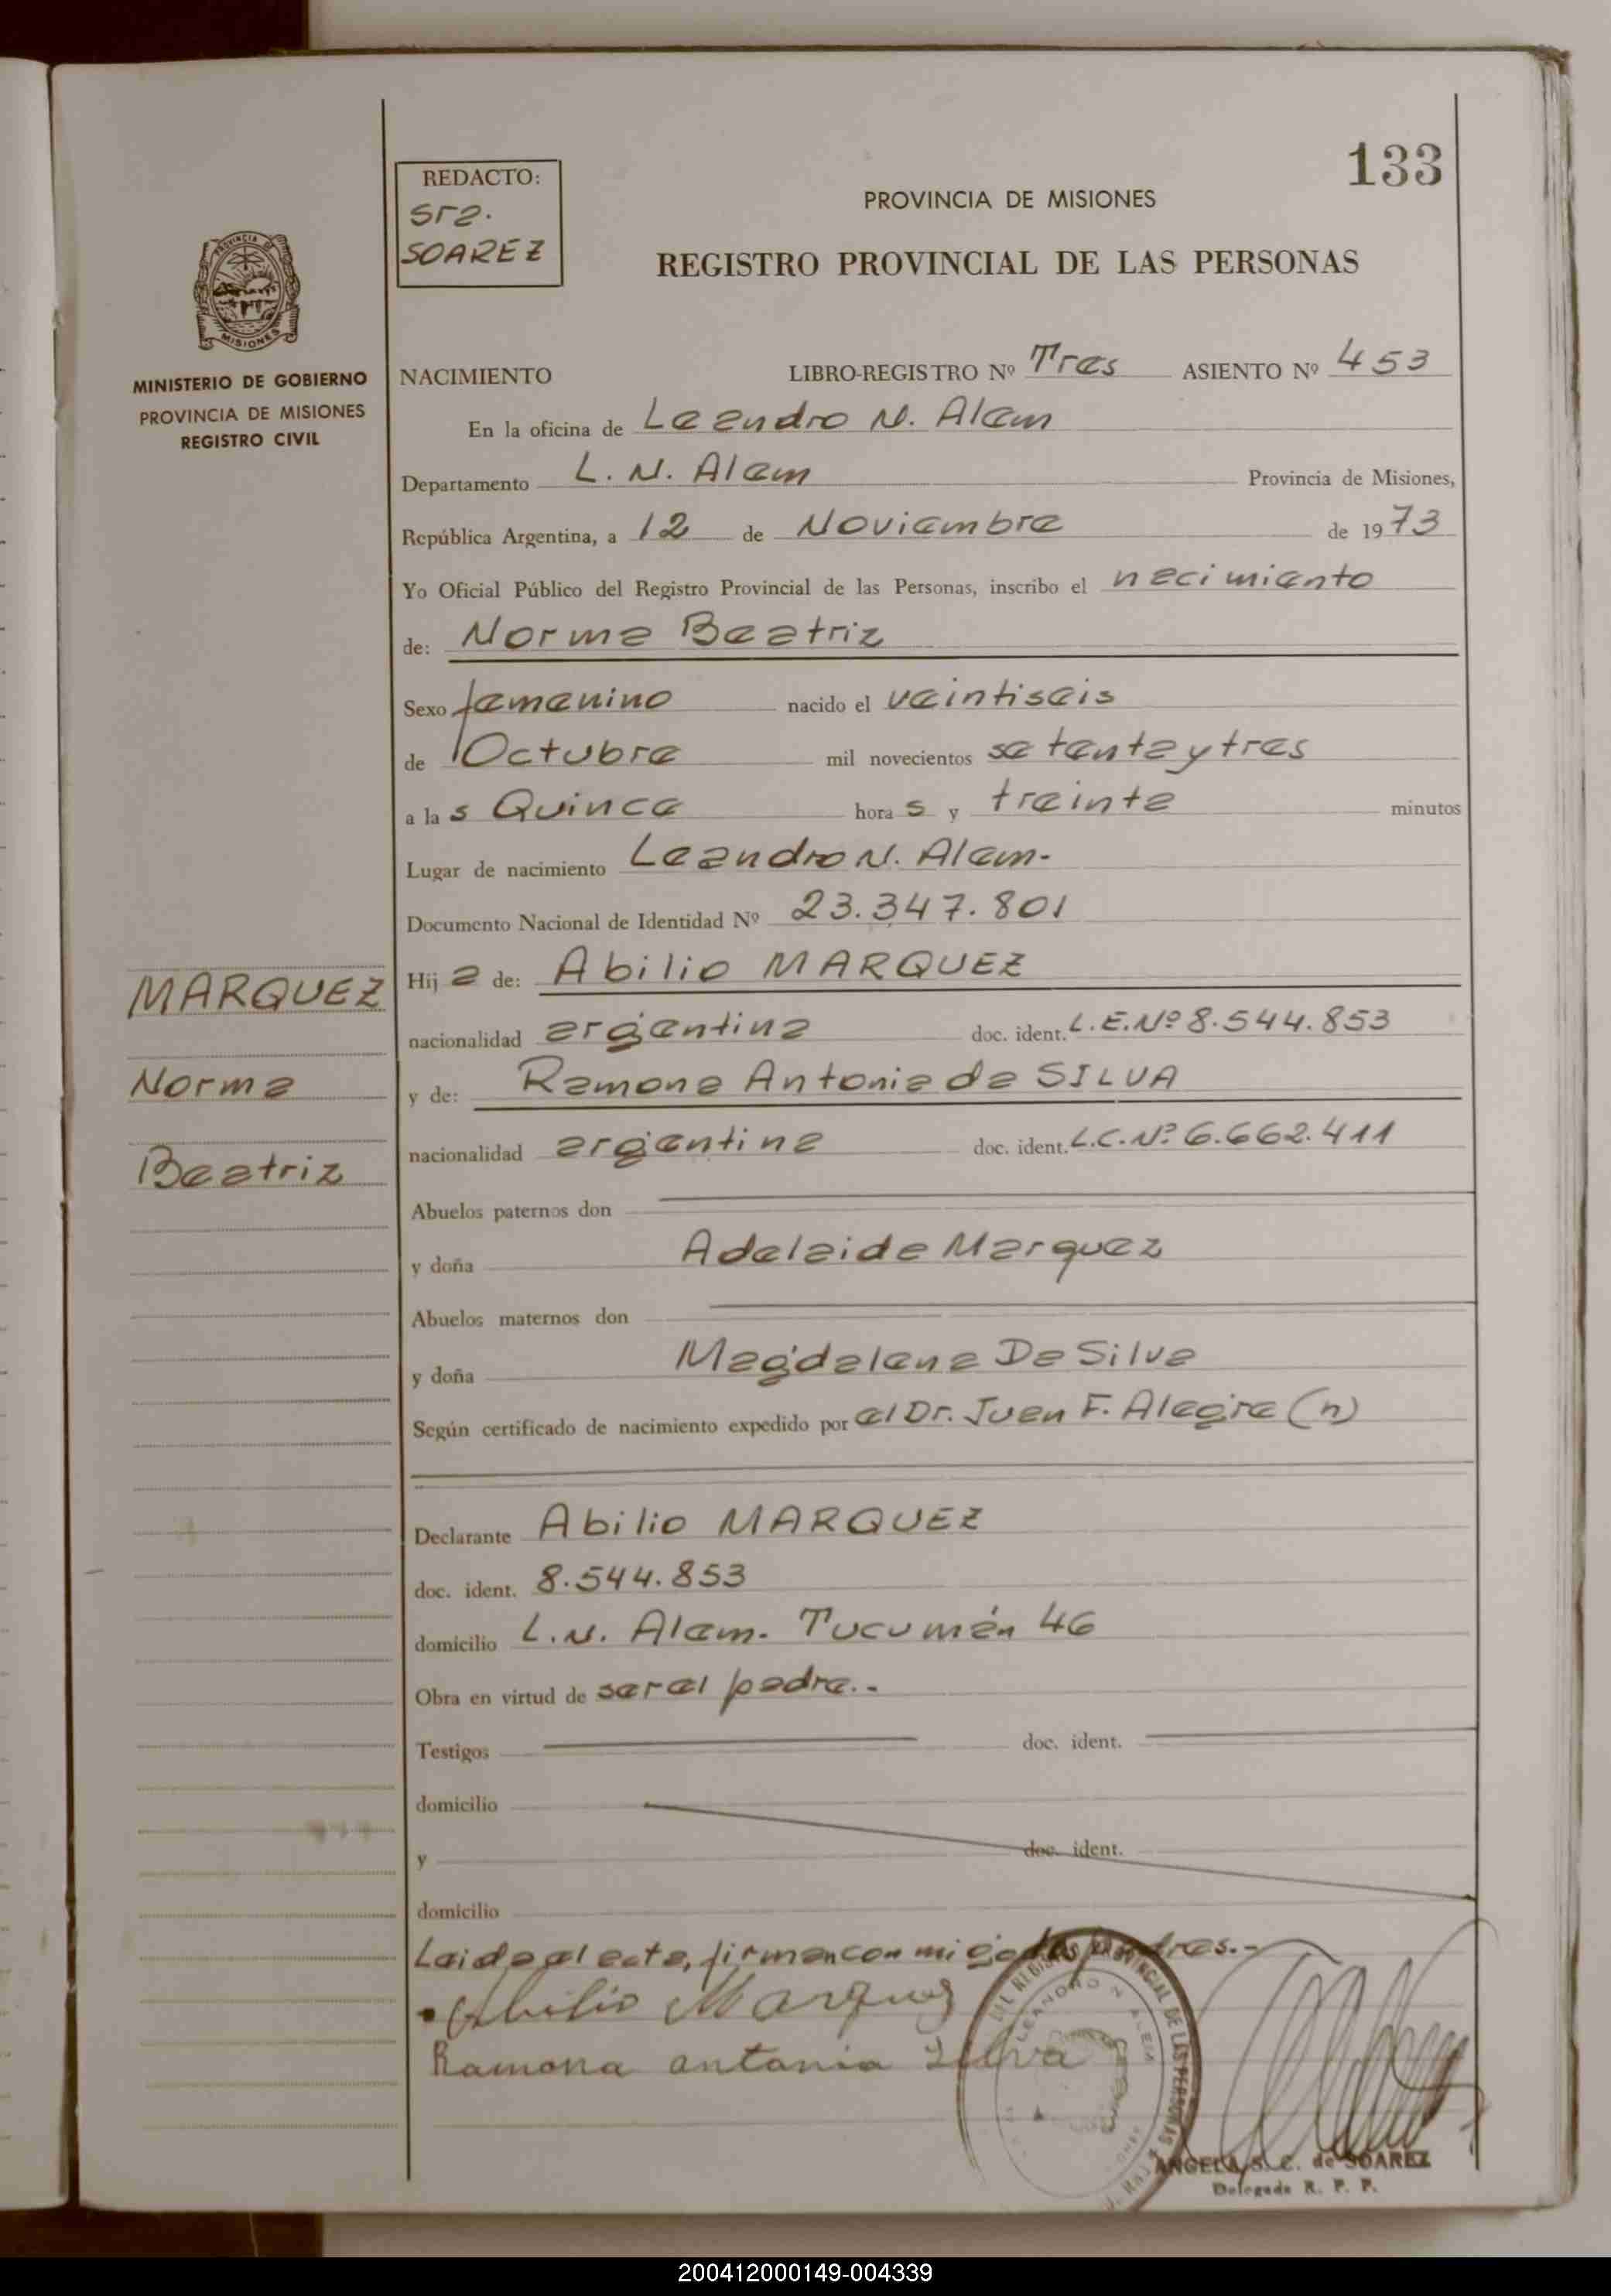 133
REDACTO:
Sra.
SOAREZ
PROVINCIA DE MISIONES
REGISTRO PROVINCIAL DE LAS PERSONAS
MISIONES
MINISTERIO DE GOBIERNO
PROVINCIA DE MISIONES
REGISTRO CIVIL
NACIMIENTO LIBRO-REGISTRO Nº Tres ASIENTO Nº 453
En la oficina de Leandro N. Alem
Departamento L. N. Alem Provincia de Misiones,
República Argentina, a 12 de Noviembre de 1973
Yo Oficial Público del Registro Provincial de las Personas, inscribo el nacimiento
de: Norma Beatriz
Sexo femenino nacido el veintiseis
de Octubre mil novecientos setenta y tres
a las Quince horas y treinta minutos
Lugar de nacimiento Leandro N. Alem.
Documento Nacional de Identidad Nº 23.347.801
Hija de: Abilio MARQUEZ
nacionalidad argentina doc. ident. L.E.Nº 8.544.853
y de: Ramona Antonia de SILVA
nacionalidad argentina doc. ident. L.C.Nº 6.662.411
MARQUEZ
Norma
Beatriz
Abuelos paternos don
y doña Adelaida Marquez
Abuelos maternos don
y doña Magdalena De Silva
Según certificado de nacimiento expedido por el Dr. Juan F. Alegre (n)
Declarante Abilio MARQUEZ
doc. ident. 8.544.853
domicilio L.N. Alem. Tucumán 46
Obra en virtud de ser el padre.-
Testigos doc. ident.
domicilio
y doc. ident.
domicilio
Leida el acta, firman con migo los padres.-
Abilio Marquez
Ramona antonia Silva
REGISTRO PROVINCIAL DE LAS PERSONAS
LEANDRO N ALEM
ANGELA S. C. de SOAREZ
Delegada R. P. P.
200412000149-004339